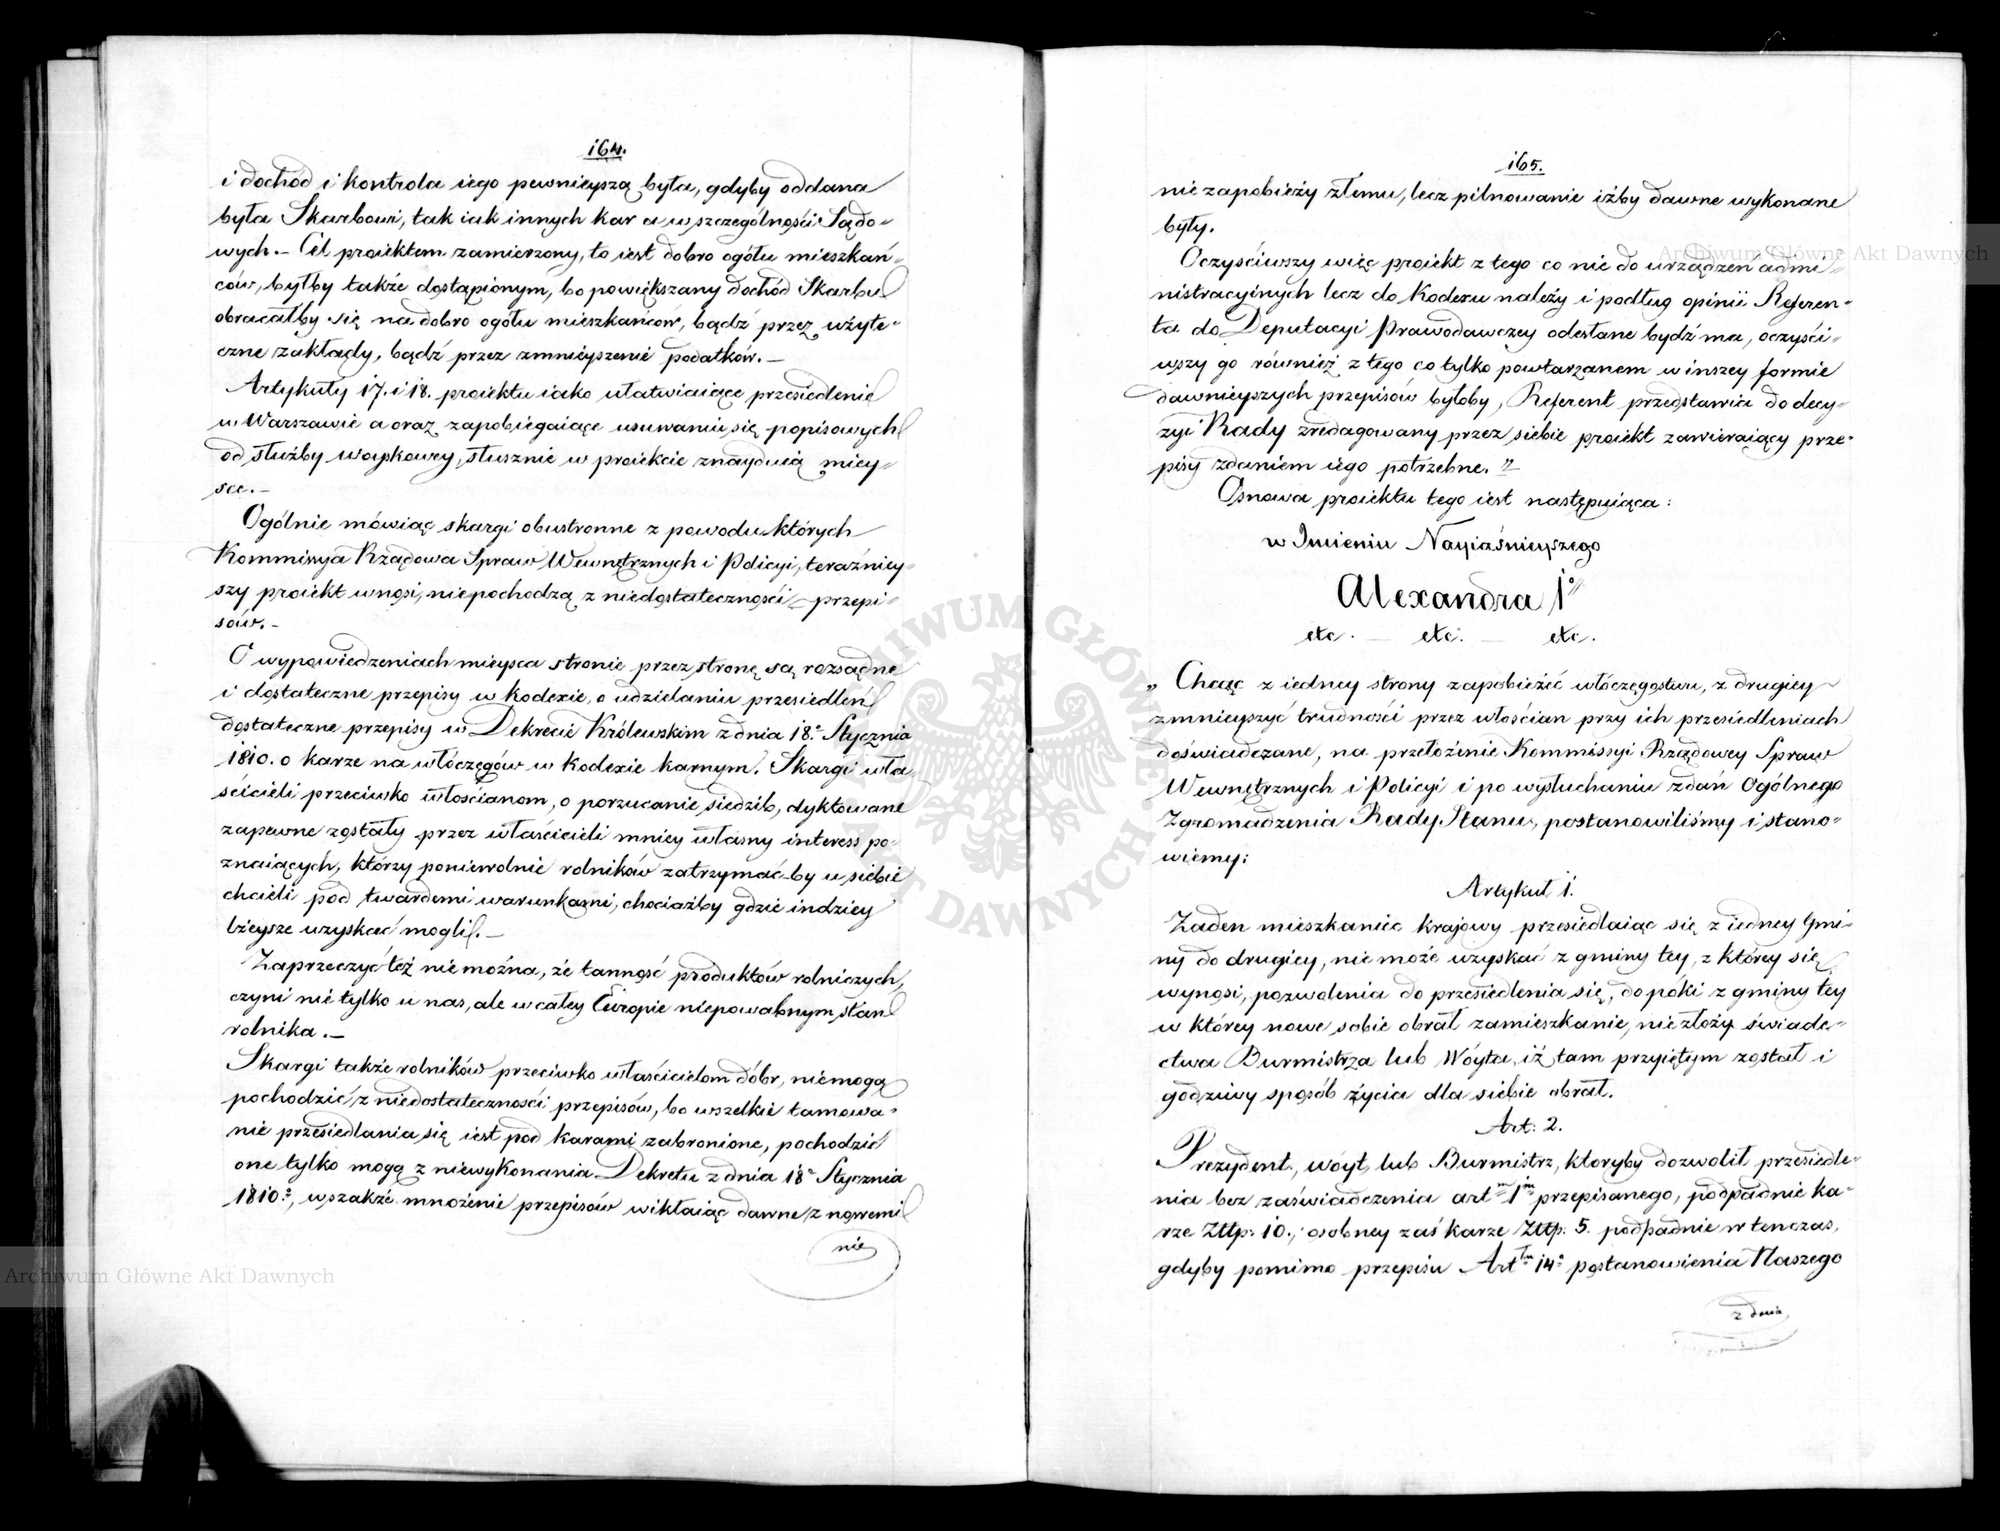 164.
i dochód i kontrola iego pewnieyszą była, gdyby oddana
była Skarbowi, tak iak innych kar a w szczególności Sądo-
wych. – Cel proiektem zamierzony, to iest dobro ogółu mieszkań-
ców, byłby także dostąpionym, bo powiększany dochód Skarbu
obracałby się na dobro ogółu mieszkańców, bądź przez użyte-
czne zakłady, bądź przez zmnieyszenie podatków. –
Artykuły 17. i 18. proiektu iako ułatwiaiące przesiedlenie
w Warszawie a oraz zapobiegaiące usuwaniu się popisowych
od służby woyskowey, słusznie w proiekcie znayduią miey-
sce. –
Ogólnie mówiąc skargi obustronne z powodu których
Kommissya Rządowa Spraw Wewnętrznych i Policyi, teraźniey-
szy proiekt wnosi, niepochodzą z niedostateczności przepi-
sów. –
O wypowiedzeniach mieysca stronie przez stronę są rozsądne
i dostateczne przepisy w kodexie, o udzielaniu przesiedleń
dostateczne przepisy w Dekrecie Królewskim z dnia 18.º Stycznia
1810. o karze na włóczęgów w Kodexie karnym. Skargi wła-
ścicieli przeciwko włościanom, o porzucanie siedzib, dyktowane
zapewne zostały przez właścicieli mniey własny interess po-
znaiących, którzy poniewolnie rolników zatrzymać-by u siebie
chcieli pod twardemi warunkami, chociażby gdzie indziey
lżeysze uzyskać mogli. –
Zaprzeczyć też nie można, że tanność produktów rolniczych,
czyni nie tylko u nas, ale w całey Europie niepowabnym stan
rolnika. –
Skargi także rolników przeciwko właścicielom dóbr, niemogą
pochodzić z niedostateczności przepisów, bo wszelkie tamowa-
nie przesiedlania się iest pod karami zabronione, pochodzić
one tylko mogą z niewykonania Dekretu z dnia 18º Stycznia
1810.º, wszakże mnożenie przepisów wikłaiąc dawne z nowemi
nie
165.
nie zapobieży złemu, lecz pilnowanie iżby dawne wykonane
były.
Oczyściwszy więc proiekt z tego co nie do urządzeń admi-
nistracyinych lecz do Kodexu należy i podług opinii Referen-
ta do Deputacyi Prawodawczey odesłane bydź ma, oczyści-
wszy go również z tego co tylko powtarzanem w inszey formie
dawnieyszych przepisów byłoby, Referent przedstawia do decy-
zyi Rady zredagowany przez siebie proiekt zawieraiący prze-
pisy zdaniem iego potrzebne. "
Osnowa proiektu tego iest następuiąca:
w Imieniu Nayiaśnieyszego
Alexandra Iº
etc. — etc. — etc.
„ Chcąc z iedney strony zapobieżeć włóczęgostwu, z drugiey
zmnieyszyć trudności przez włościan przy ich przesiedleniach
doświadczane, na przełożenie Kommissyi Rządowey Spraw
Wewnętrznych i Policyi i po wysłuchaniu zdań Ogólnego
Zgromadzenia Rady Stanu, postanowiliśmy i stano-
wiemy:
Artykuł 1.
Żaden mieszkaniec krajowy przesiedlaiąc się z iedney Gmi-
ny do drugiey, nie może uzyskać z gminy tey, z którey się
wynosi, pozwolenia do przesiedlenia się, dopóki z gminy tey
w którey nowe sobie obrał zamieszkanie, nie złoży świade-
ctwa Burmistrza lub Wóyta, iż tam przyiętym został i
godziwy sposób życia dla siebie obrał.
Art: 2.
Prezydent, wóyt, lub Burmistrz, któryby dozwolił przesiedle-
nia bez zaświadczenia artm 1m przepisanego, podpadnie ka-
rze Złtp: 10., osobney zaś karze Złtp: 5. podpadnie w tenczas,
gdyby pomimo przepisu Arttu 14º postanowienia Naszego
z dnia
Archiwum Główne Akt Dawnych
Archiwum Główne Akt Dawnych
ARCHIWUM GŁÓWNE AKT DAWNYCH